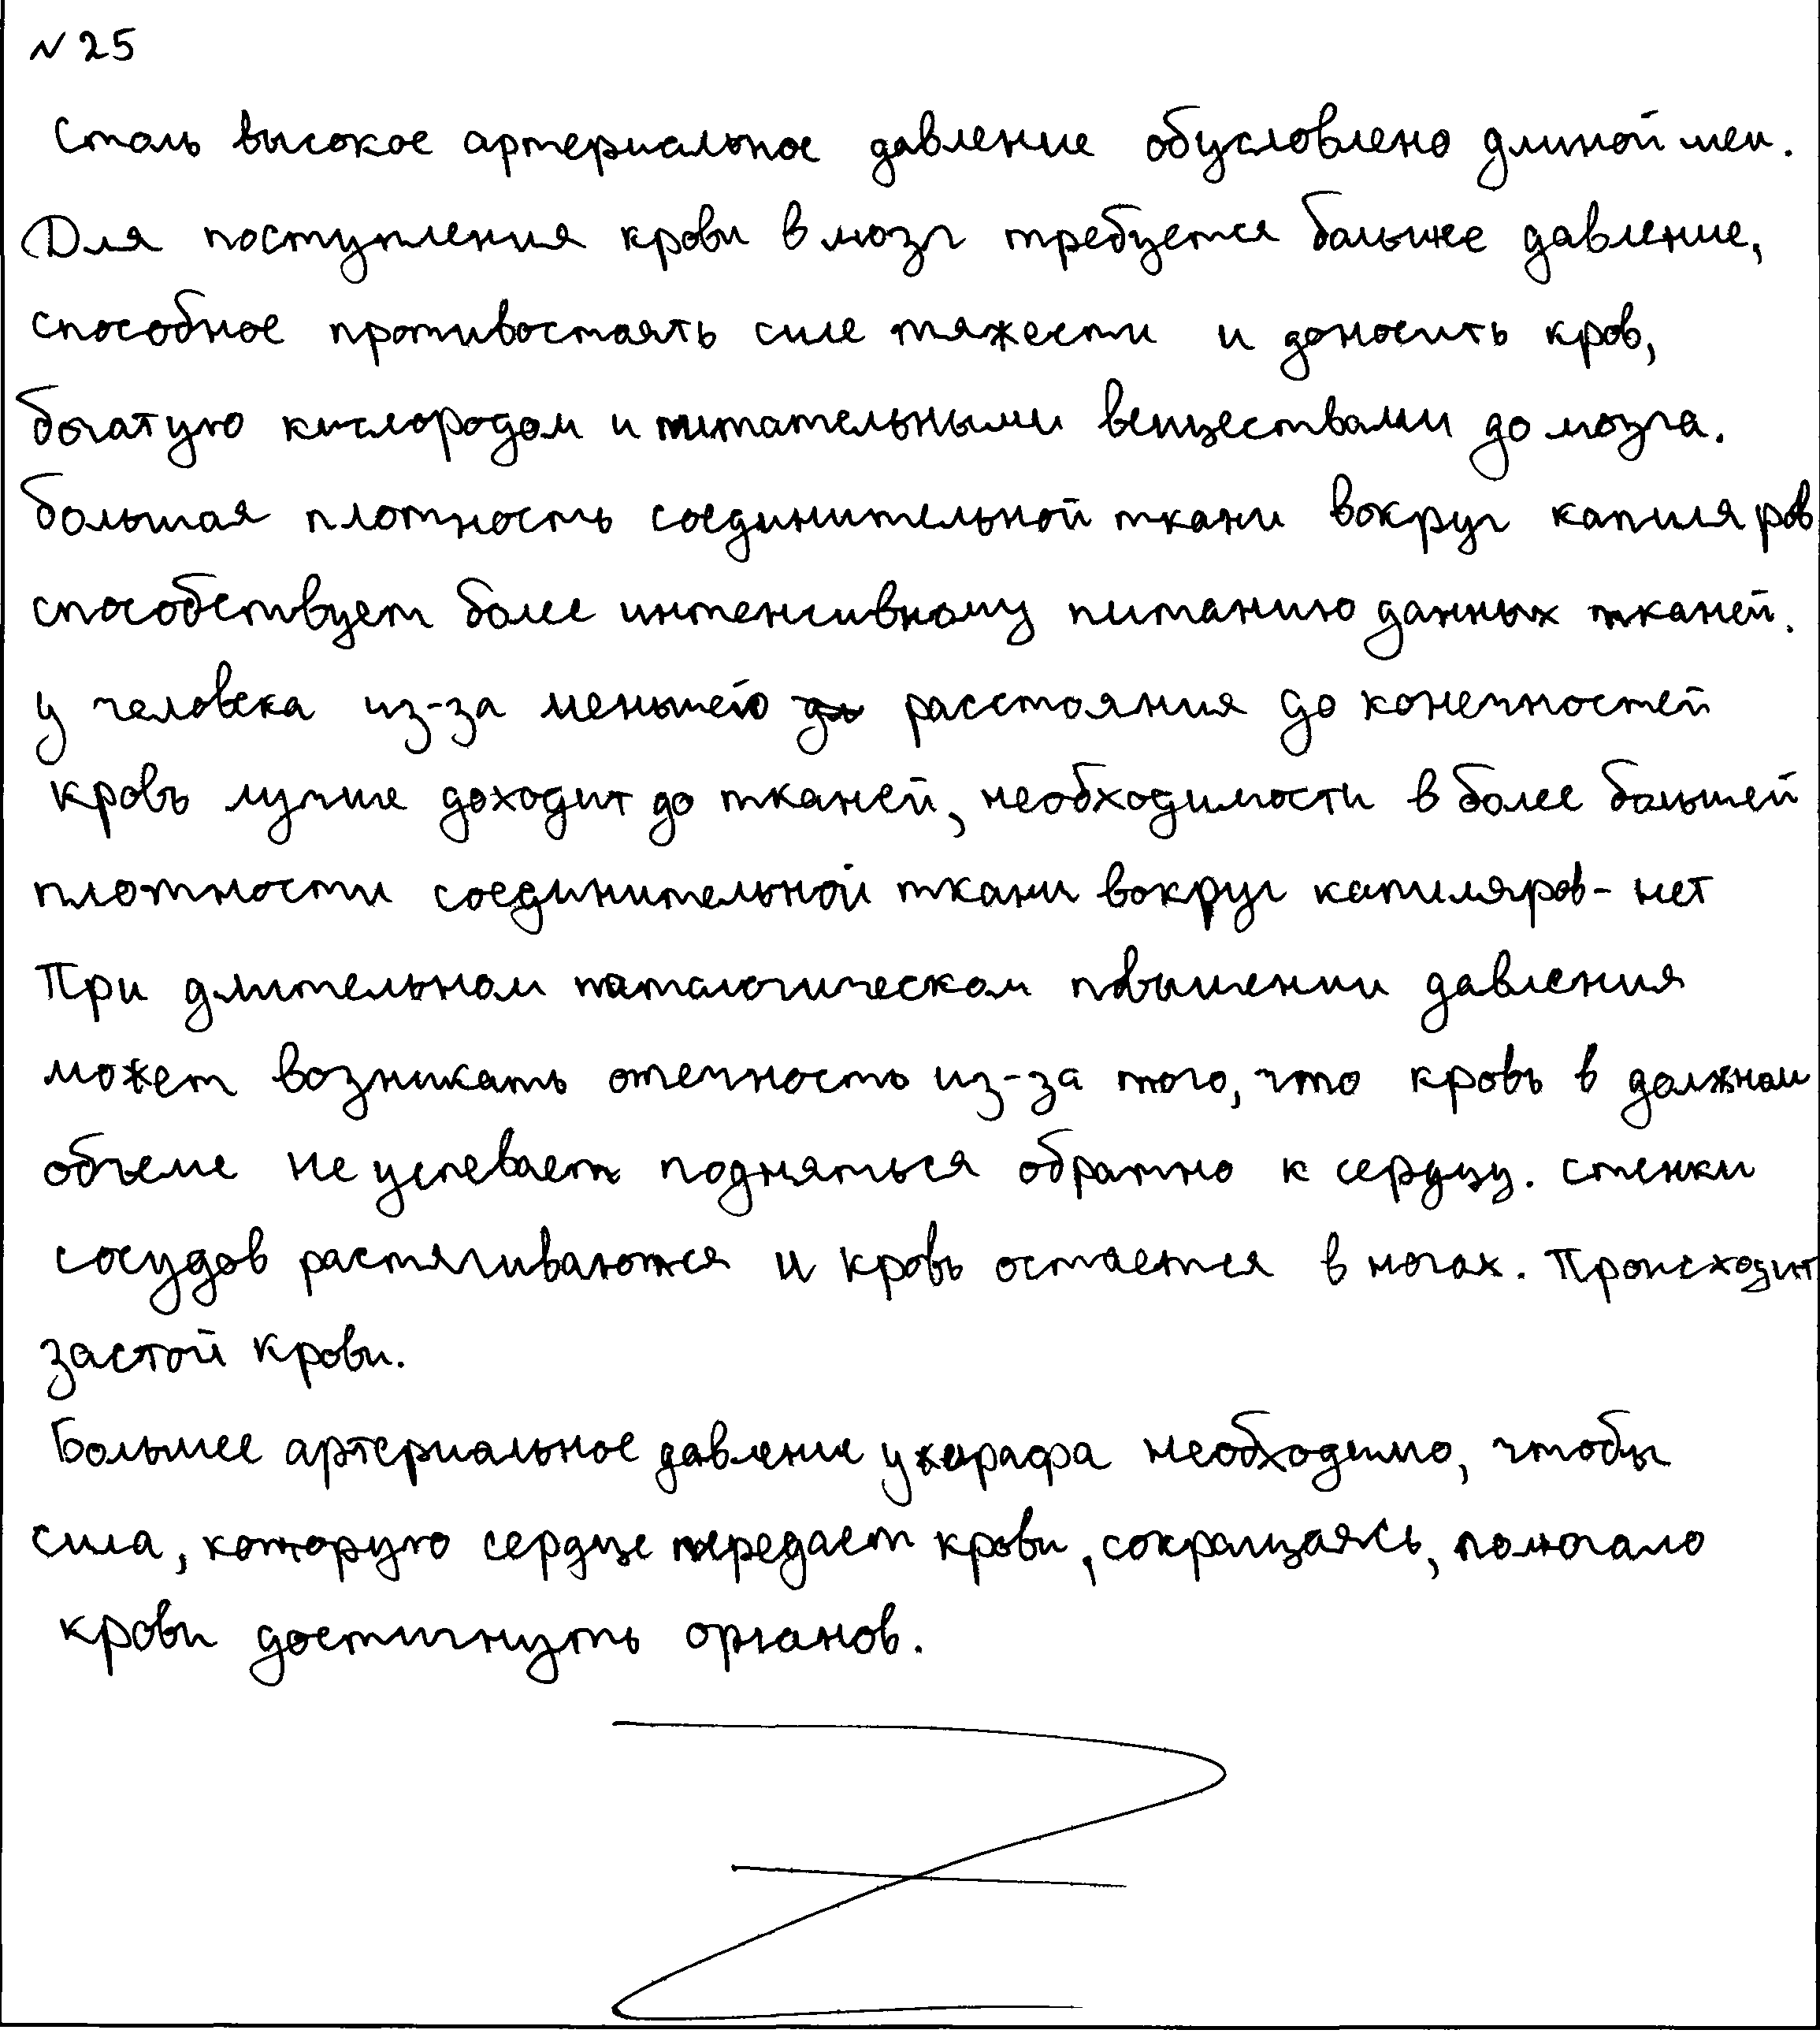 N 25
Столь высокое артериальное давление обусловлено длиной шеи.
Для поступления крови в мозг требуется больше давление,
способное противостоять силе тяжести и доносить кров,
богатую кислородом и питательными веществами до мозга.
Большая плотность соединительной ткани вокруг капиляров
способствует более интенсивному питанию данных тканей.
у человека из-за меньшего расстояния до конечностей
кровь лучше доходит до тканей, необходимости в более большей
плотности соединительной ткани вокруг капиляров - нет
При длительном паталогическом повышении давления
может возникать отечность из-за того, что кровь в должном
объеме не успевает подняться обратно к сердцу. стенки
сосудов растягиваются и кровь остается в ногах. Происходит
застой крови.
Большее артериальное давление у жирафа необходимо, чтобы
сила, которую сердце передает крови, сокращаясь, помогало
крови достигнуть органов.